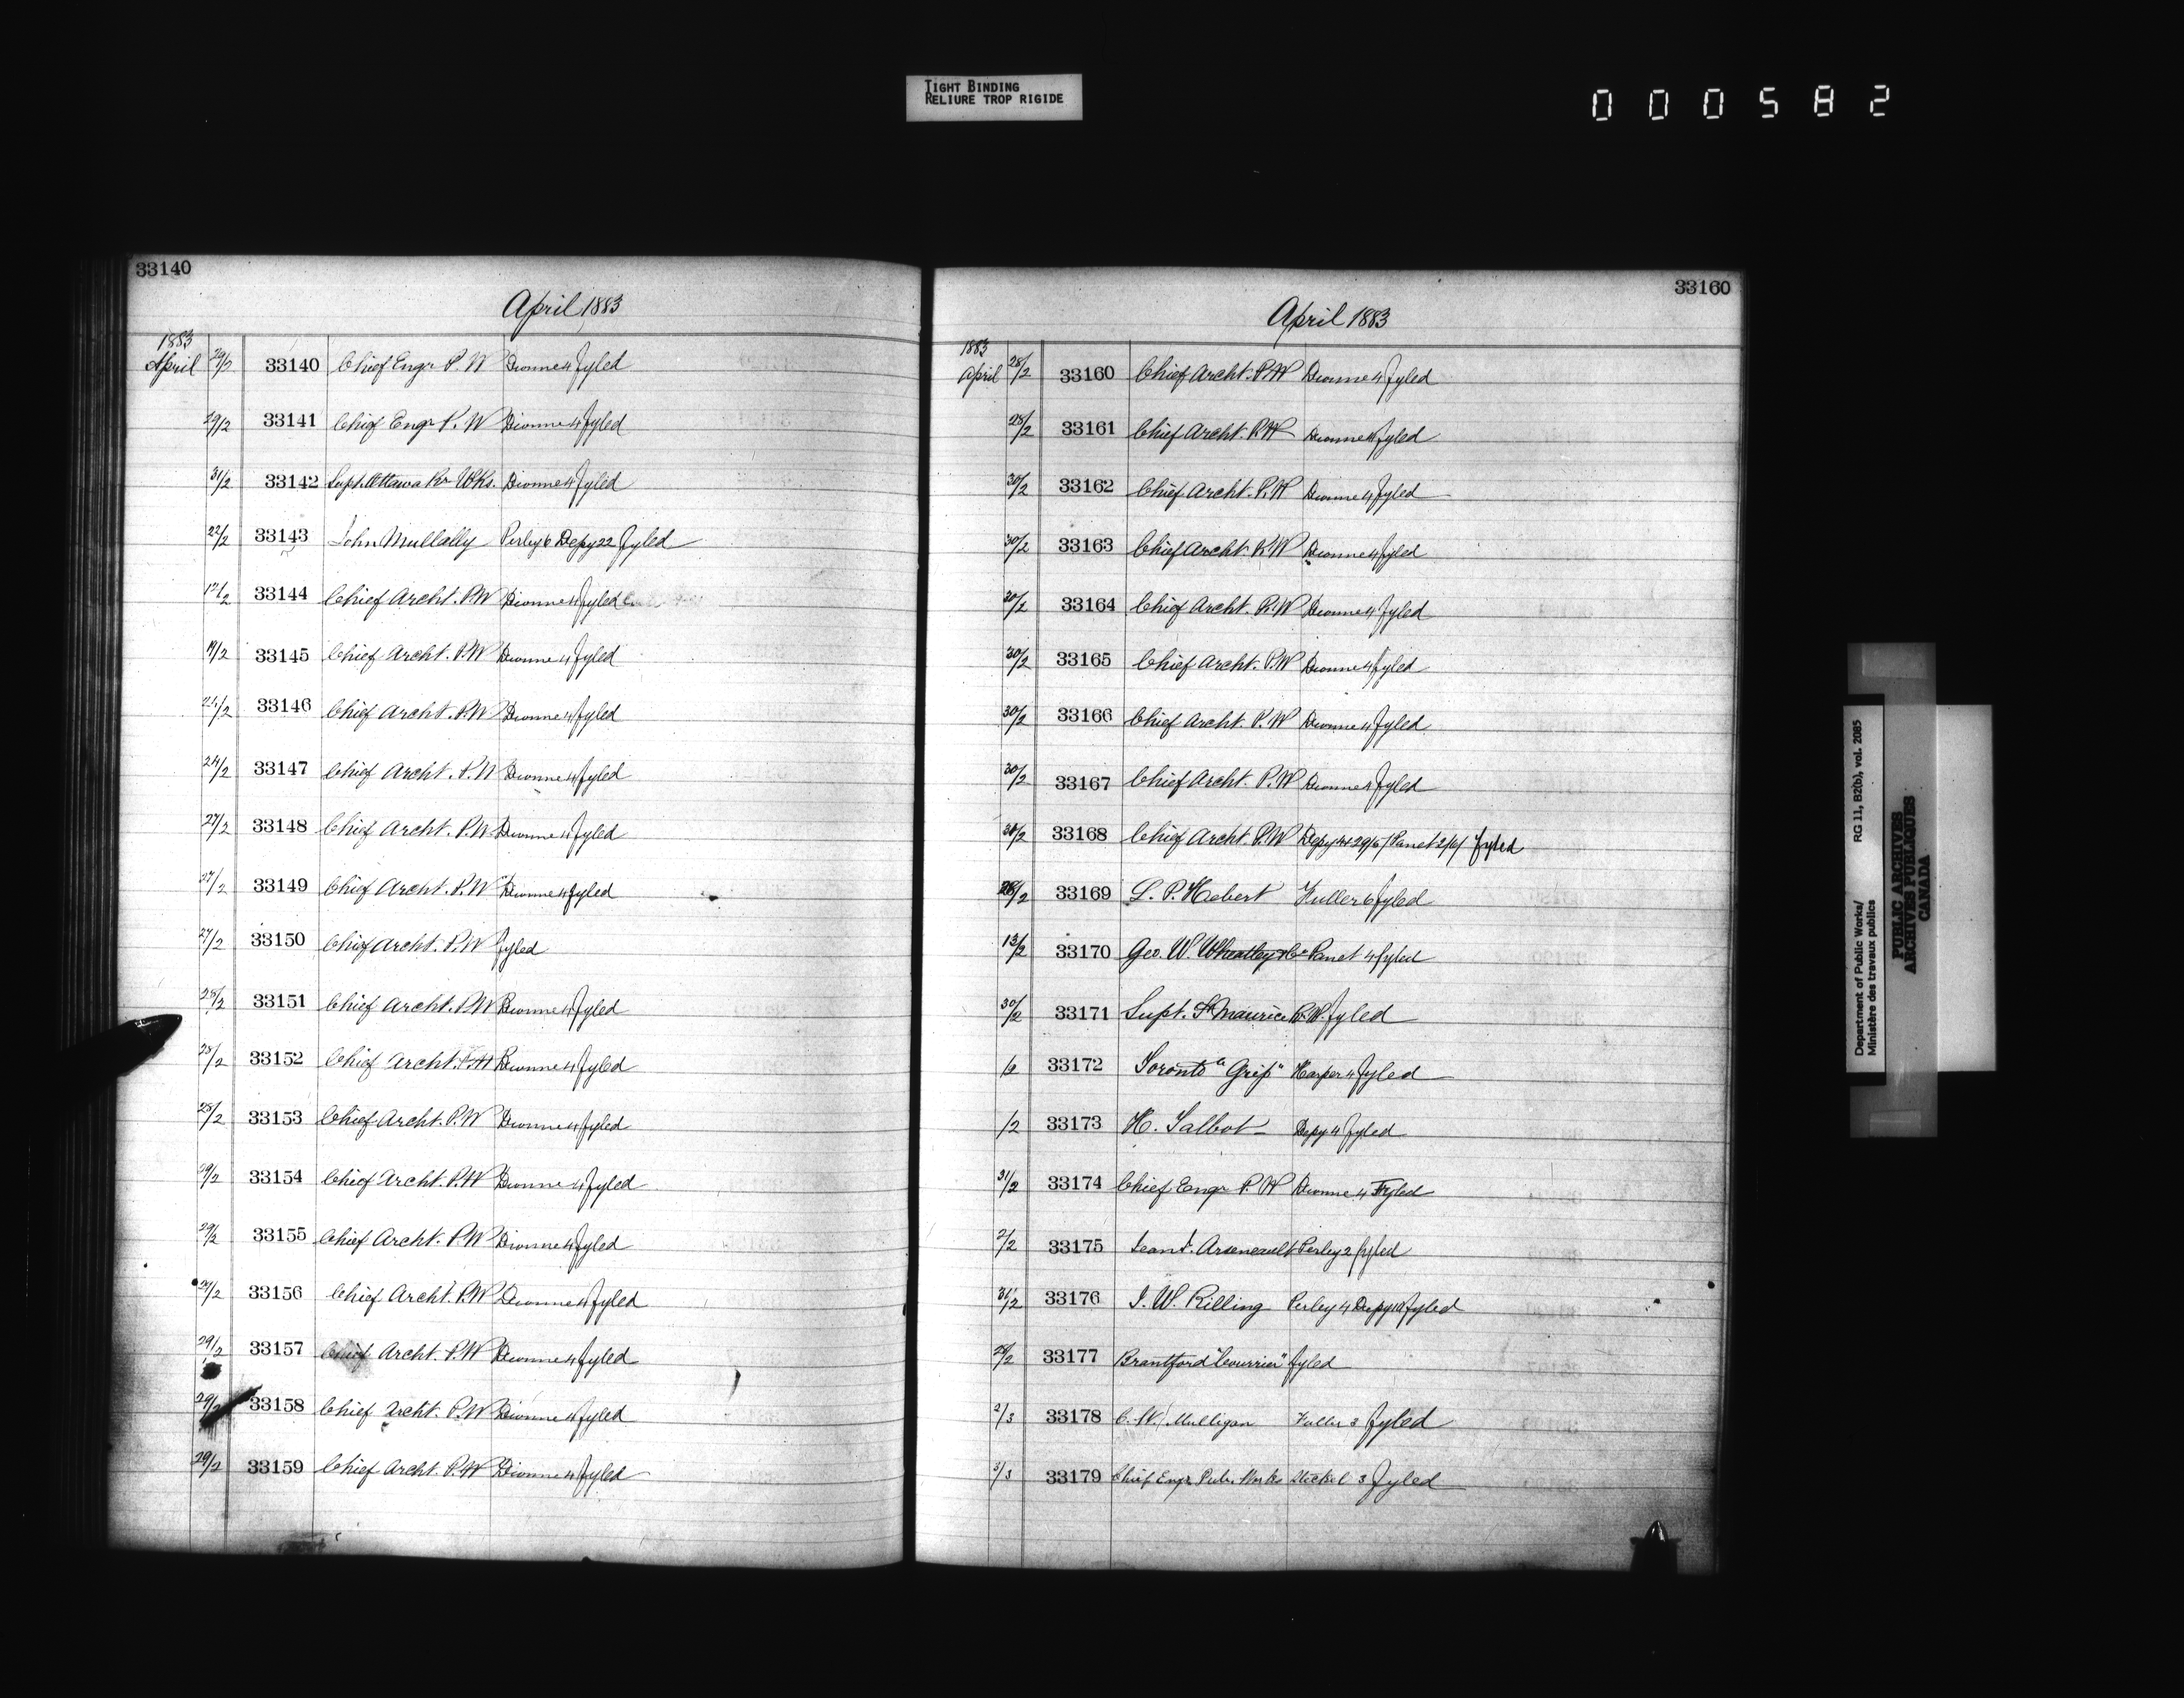 TIGHT BINDING
RELIURE TROP RIGIDE
000582
33140
April 1883
1883
April 29/2 33140 Chief Engr P. W Dionne 4 fyled
29/2 33141 Chief Engr P. W Dionne 4 fyled
31/2 33142 Supt. Ottawa Rr Wks. Dionne 4 fyled
22/2 33143 John Mullally Perley 6 Depy 22 fyled
33144 Chief Archt. P.W Dionne 4 fyled
19/2 33145 Chief Archt. P.W Dionne 4 fyled
33146 Chief Archt. P.W Dionne 4 fyled
24/2 33147 Chief Archt. P.W Dionne 4 fyled
27/2 33148 Chief Archt. P.W Dionne 4 fyled
27/2 33149 Chief Archt. P.W Dionne 4 fyled
27/2 33150 Chief Archt. P.W fyled
28/2 33151 Chief Archt. P.W Dionne 4 fyled
28/2 33152 Chief Archt. P.W Dionne 4 fyled
28/2 33153 Chief Archt. P.W Dionne 4 fyled
29/2 33154 Chief Archt. P.W Dionne 4 fyled
29/2 33155 Chief Archt. P.W Dionne 4 fyled
29/2 33156 Chief Archt. P.W Dionne 4 fyled
29/2 33157 Chief Archt. P.W Dionne 4 fyled
29/2 33158 Chief Archt. P.W Dionne 4 fyled
29/2 33159 Chief Archt. P.W Dionne 4 fyled
33160
April 1883
1883
April 28/2 33160 Chief Archt. P.W Dionne 4 fyled
28/2 33161 Chief Archt. P.W Dionne 4 fyled
30/2 33162 Chief Archt. P.W Dionne 4 fyled
30/2 33163 Chief Archt. P.W Dionne 4 fyled
30/2 33164 Chief Archt. P.W Dionne 4 fyled
30/2 33165 Chief Archt. P.W Dionne 4 fyled
30/2 33166 Chief Archt. P.W Dionne 4 fyled
30/2 33167 Chief Archt. P.W Dionne 4 fyled
30/2 33168 Chief Archt. P.W Depy Panet fyled
33169 L. P. Hebert Fuller 6 fyled
13/2 33170 Geo. W. Wheatley & Co Panet 4 fyled
30/2 33171 Supt. St Maurice R.W. fyled
/2 33172 Toronto "Grip" Harper 4 fyled
/2 33173 H. Talbot Depy 4 fyled
31/2 33174 Chief Engr P. W Dionne 4 Fyled
2/2 33175 Arseneault Perley 2 fyled
31/2 33176 J. W. Rilling Perley 4 Depy fyled
28/2 33177 Brantford "Courrier" fyled
2/3 33178 C. W. Mulligan Fuller 3 fyled
3/3 33179 Chief Engr Pub. Works Steckel 3 fyled
Department of Public Works/ RG 11, B2(b), vol. 2085
Ministère des travaux publics
PUBLIC ARCHIVES
ARCHIVES PUBLIQUES
CANADA